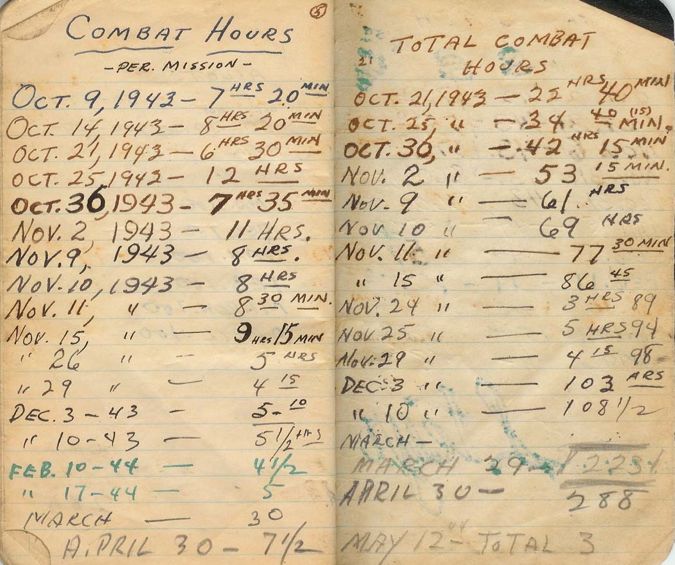 5
COMBAT HOURS
- PER. MISSION -
OCT. 9, 1943 - 7 HRS 20 MIN
OCT. 14, 1943 - 8 HRS 20 MIN
OCT. 21, 1943 - 6 HRS 30 MIN
OCT. 25, 1943 - 12 HRS
OCT. 30, 1943 - 7 HRS 35 MIN
NOV. 2, 1943 - 11 HRS.
NOV. 9, 1943 - 8 HRS.
NOV. 10, 1943 - 8 HRS
NOV. 11, " - 8 30 MIN.
NOV. 15, " - 9 HRS 15 MIN
" 26 " - 5 HRS
" 29 " - 4 15
DEC. 3 - 43 - 5-10
" 10-43 - 5 1/2 HRS
FEB. 10-44 - 4 1/2
" 17-44 - 5
MARCH - 30
APRIL 30 - 7 1/2
TOTAL COMBAT
HOURS
OCT. 21, 1943 - 22 HRS 40 MIN
OCT. 25, " - 34 40 (15) MIN.
OCT. 30, " - 42 HRS 15 MIN
NOV. 2 " - 53 15 MIN.
NOV. 9 " - 61 HRS
NOV 10 " - 69 HRS
NOV. 11 " - 77 30 MIN
" 15 " - 86 45
NOV. 24 " - 3 HRS 89
NOV 25 " - 5 HRS 94
NOV. 29 " - 4 15 98-
DEC. 3 " - 103 HRS
" 10 " - 108 1/2
MARCH -
MARCH 29 -
APRIL 30 - 288
MAY 12 - 44 TOTAL 3